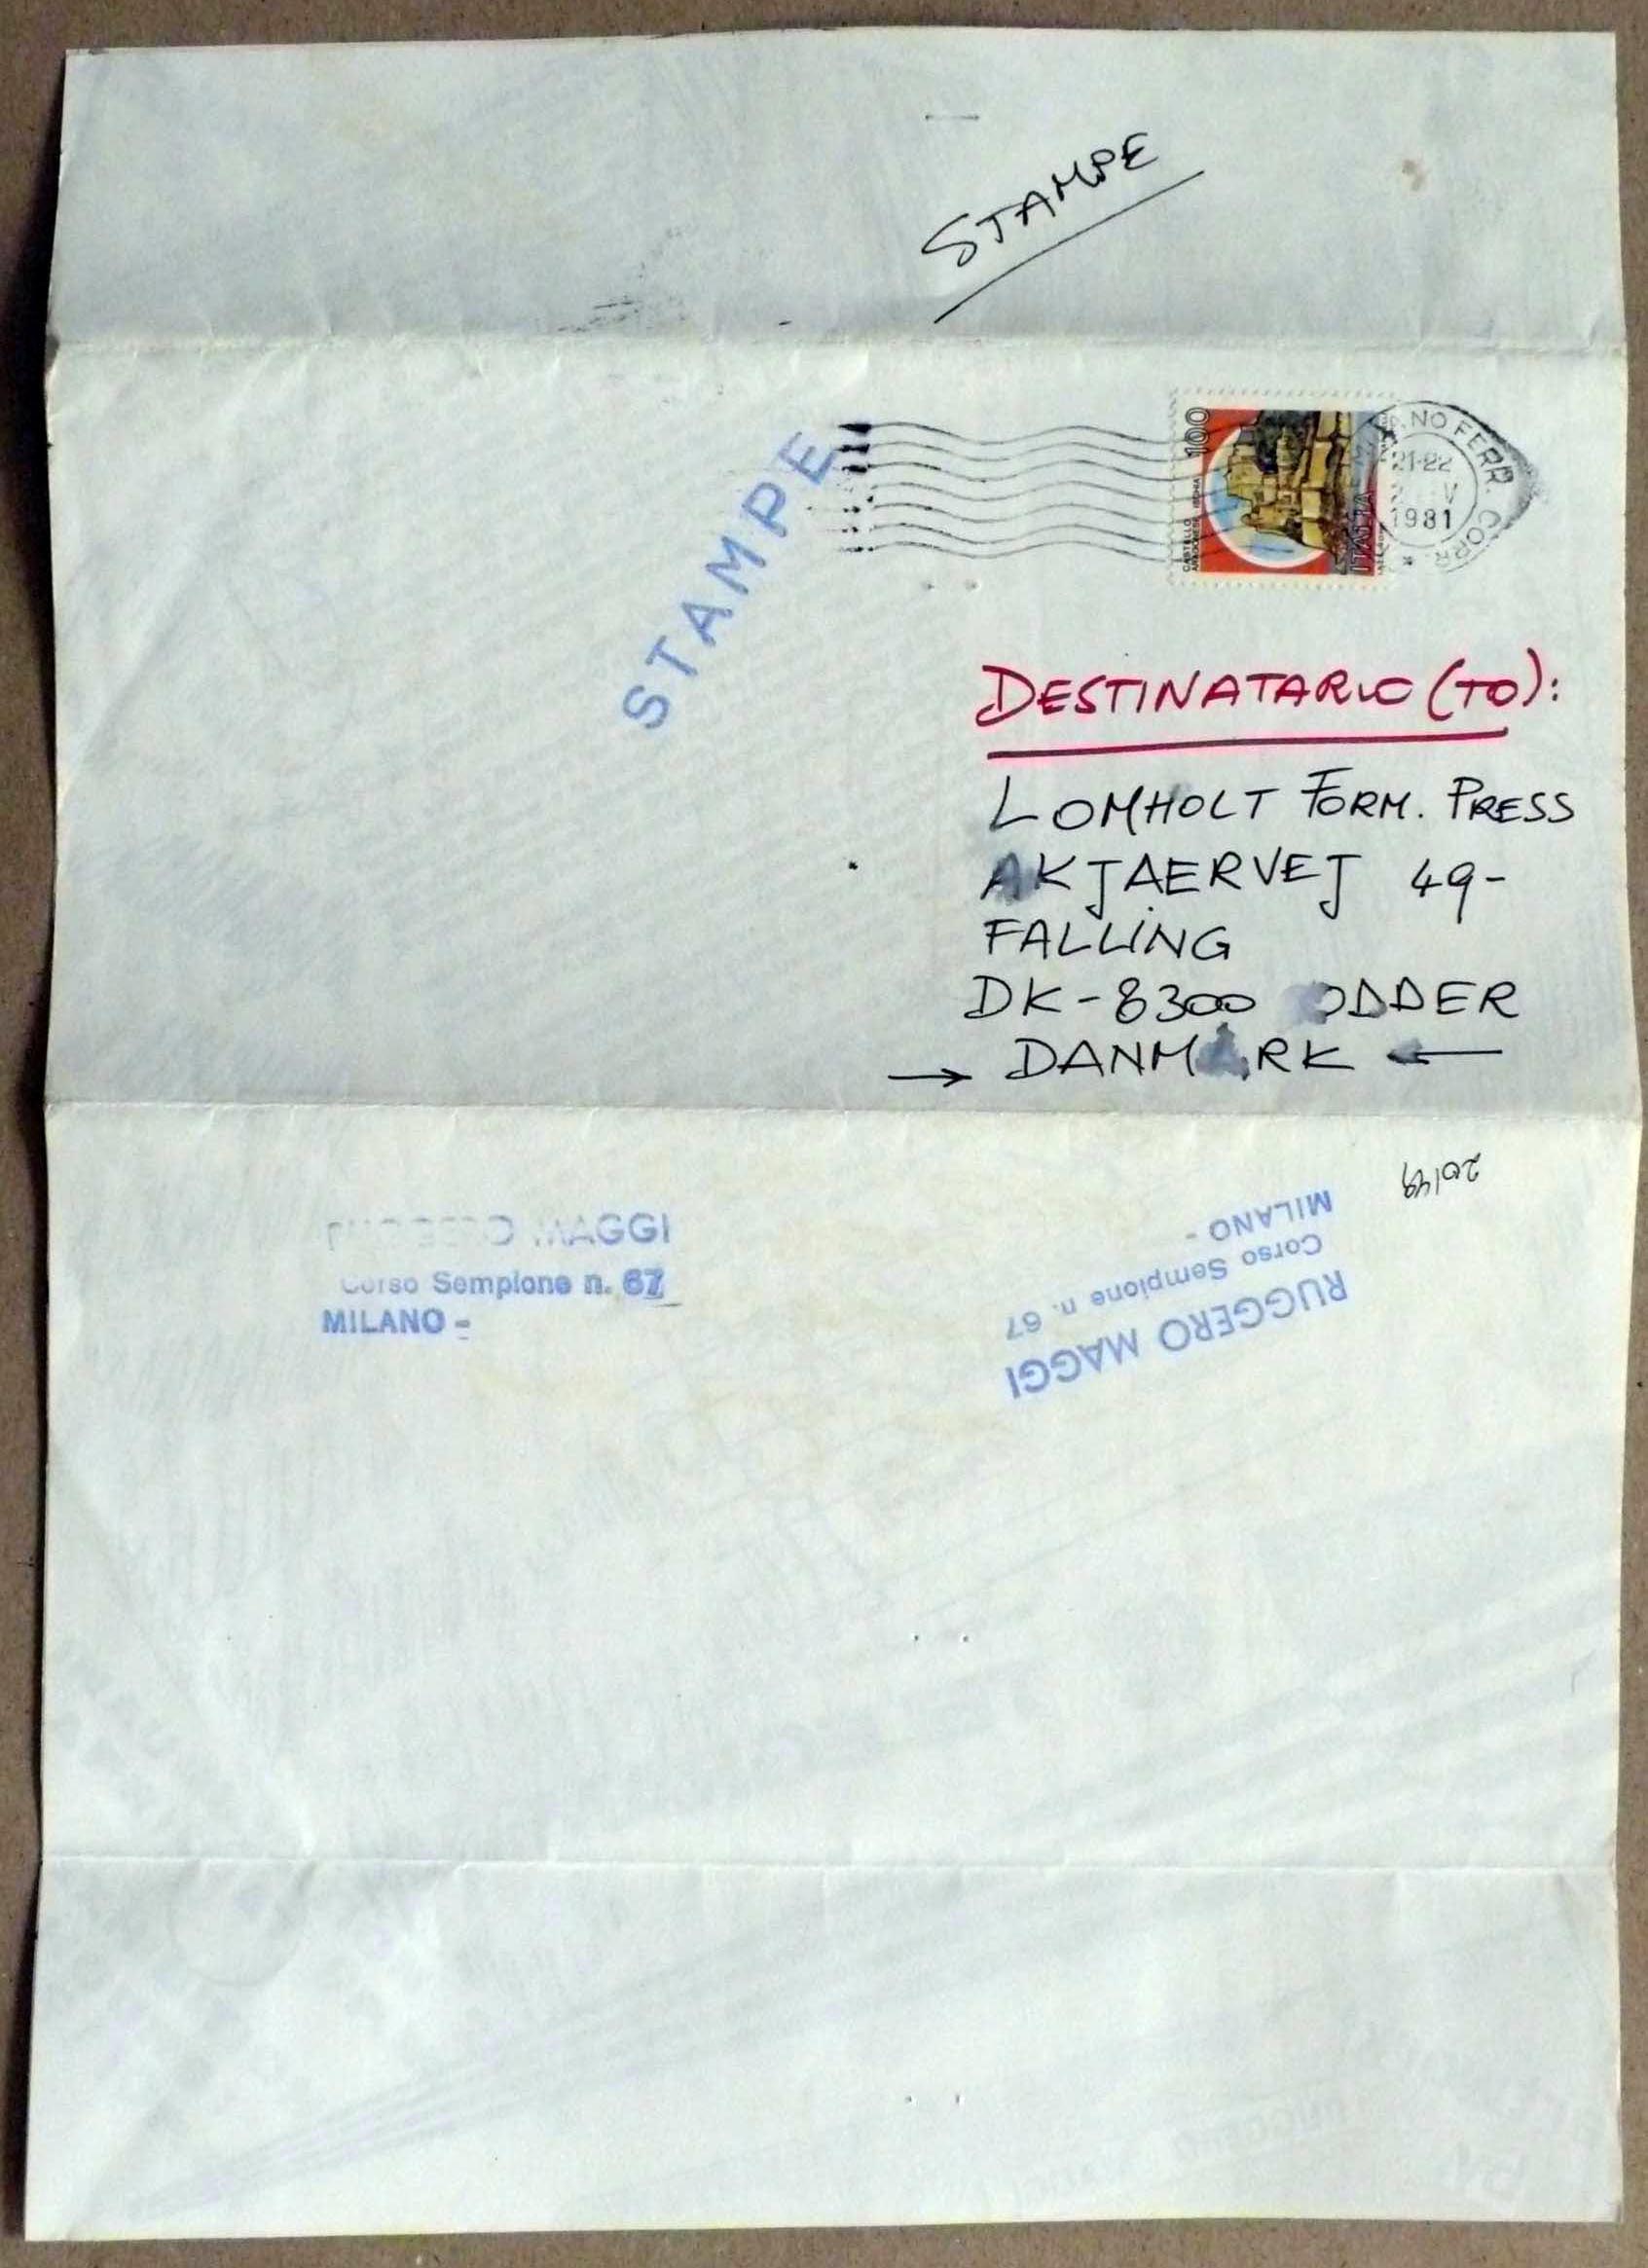 STAMPE
STAMPE
100
CASTELLO
ARAGONESE ISCHIA
ITALIA
NO FERR. CORR.
21-22
1981
DESTINATARIO (TO):
LOMHOLT FORM. PRESS
AKJAERVEJ 49-
FALLING
DK-8300 ODDER
→ DANMARK ←
MAGGI
Corso Sempione n. 67
MILANO -
RUGGERO MAGGI
Corso Sempione n. 67
MILANO -
20149